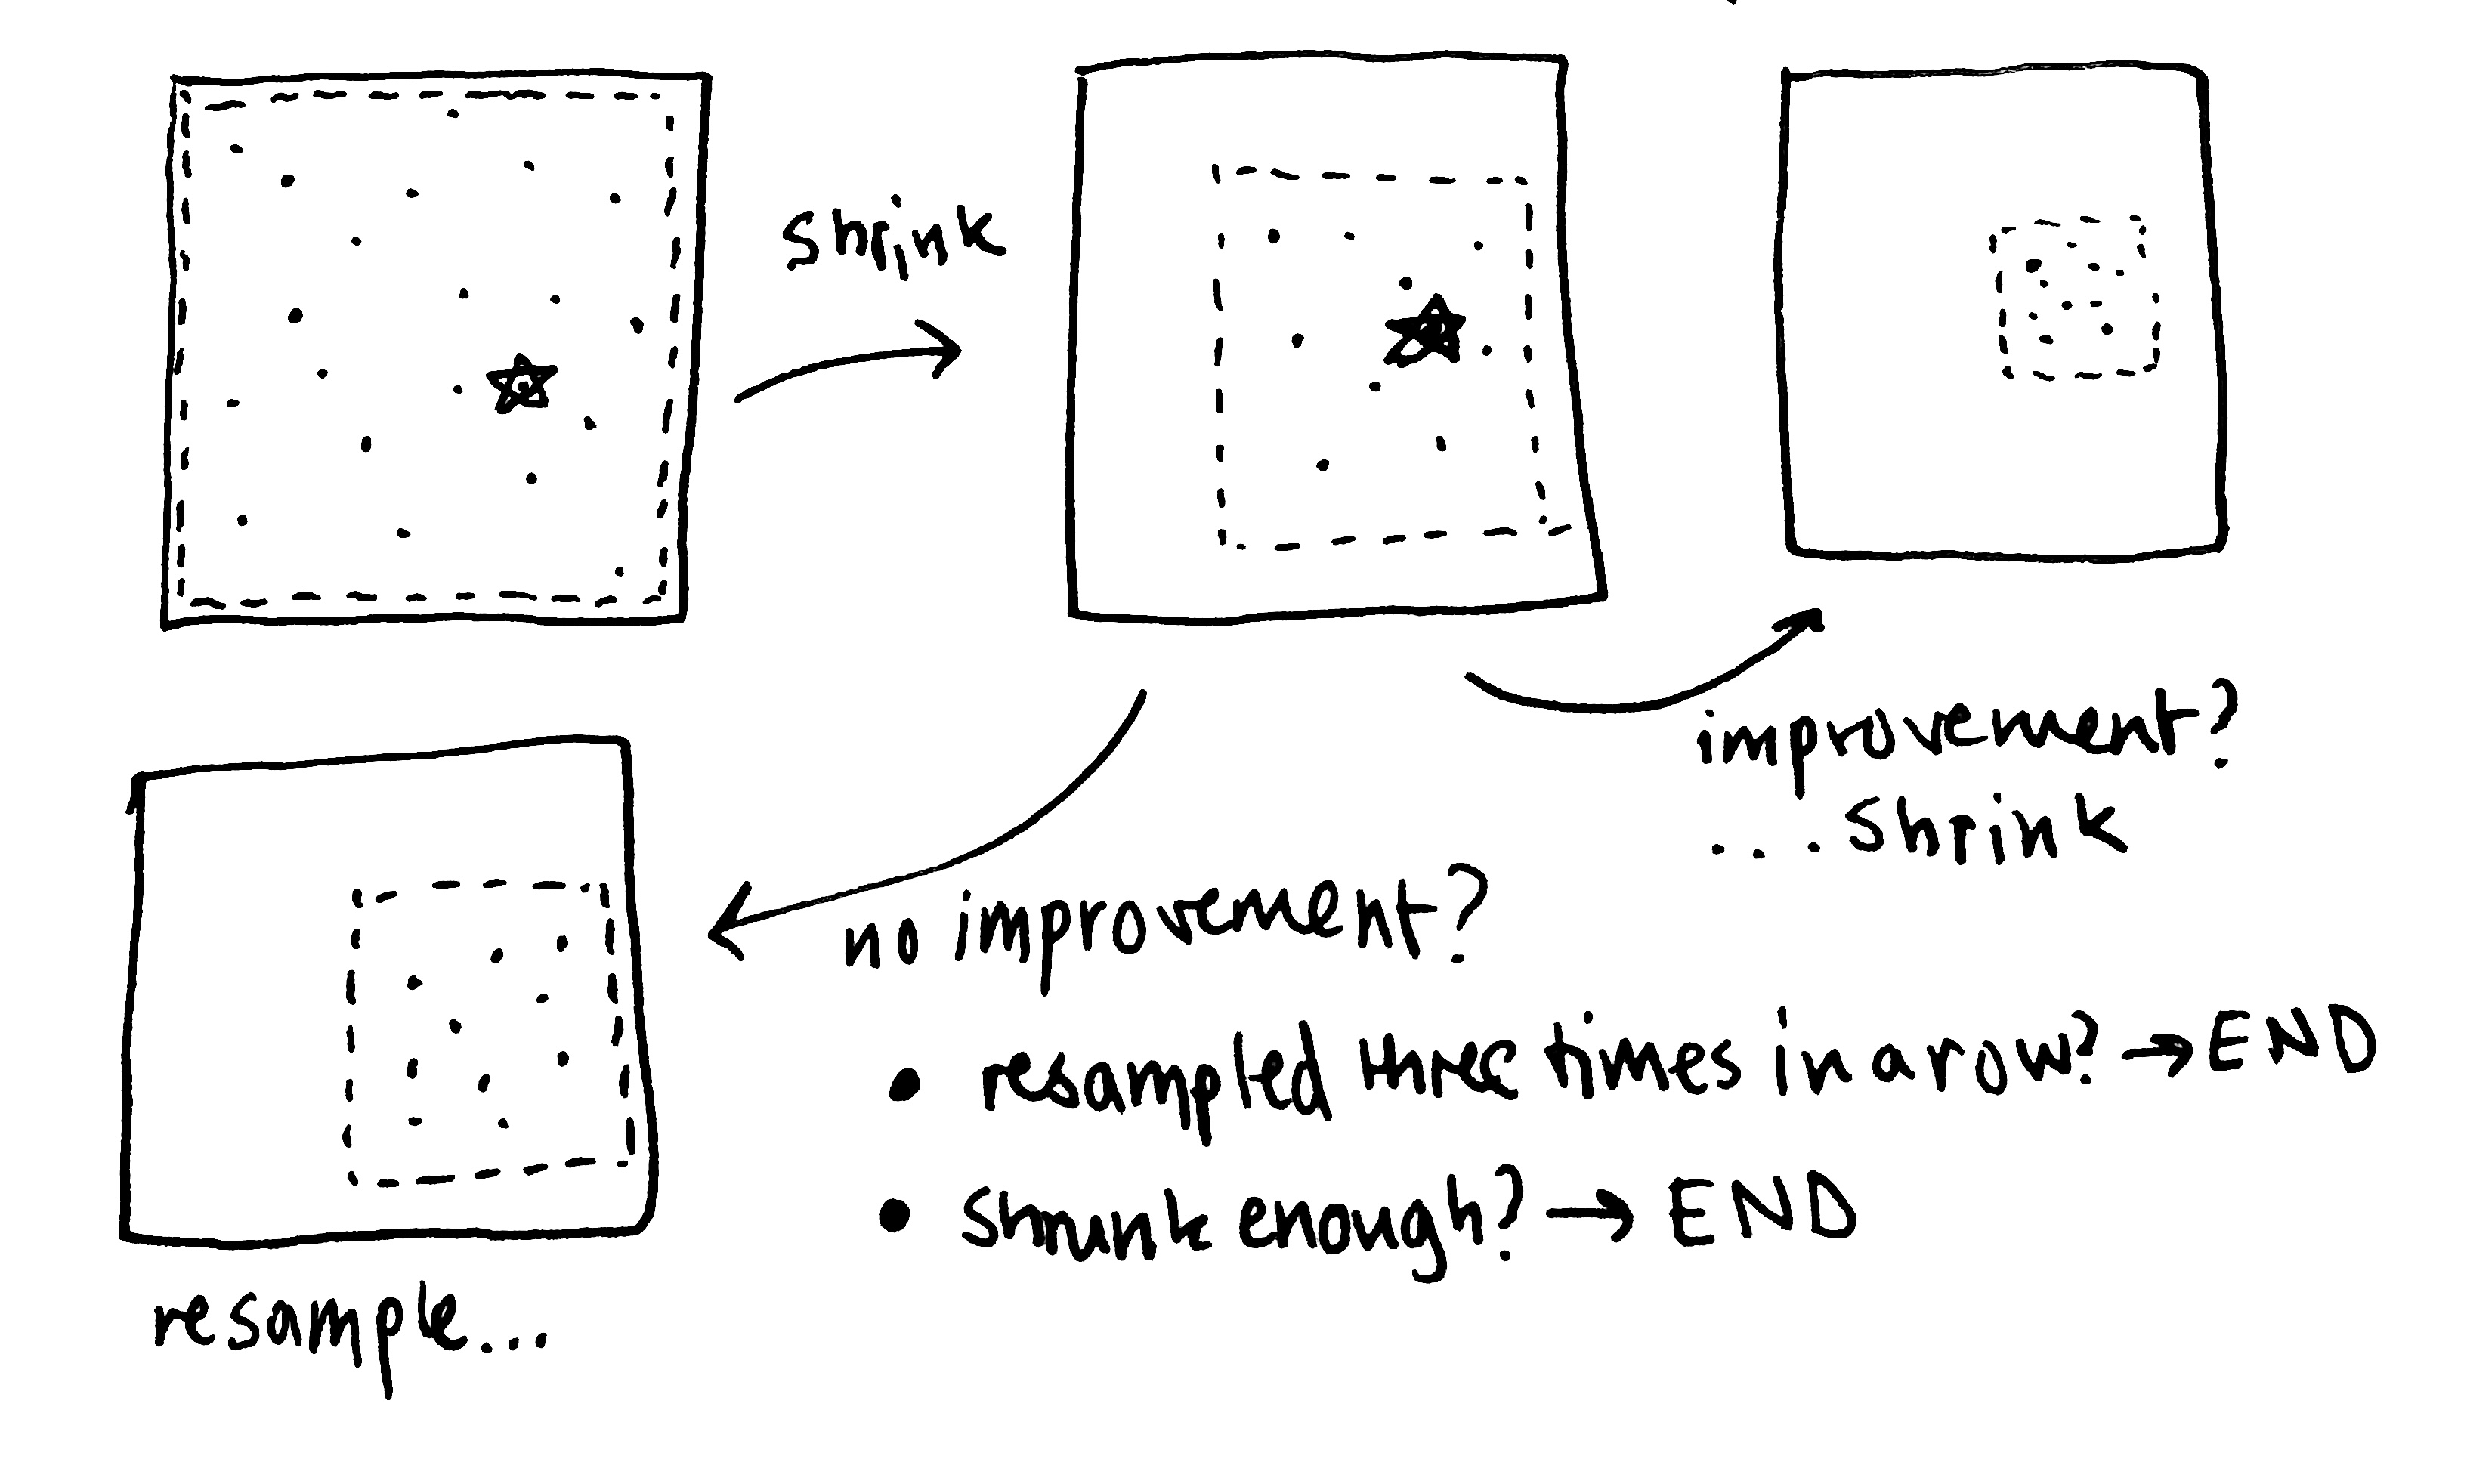 shrink
improvement?
...shrink
no improvement?
• resampled three times in a row? → END
• shrunk enough? → END
resample...